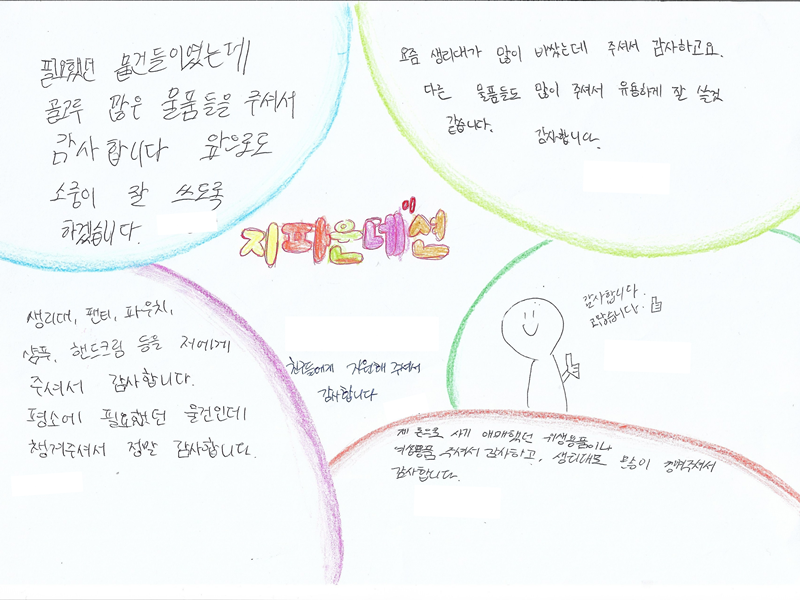 필요했던 물건들이였는데
골고루 많은 물품들을 주셔서
감사합니다 앞으로도
소중이 잘 쓰도록
하겠습니다.
요즘 생리대가 많이 비쌌는데 주셔서 감사하고요.
다른 물품들도 많이 주셔서 유용하게 잘 쓸것
같습니다. 감사합니다.
지파운데이션
생리대, 팬티, 파우치,
샴푸, 핸드크림 등을 저에게
주셔서 감사합니다.
평소에 필요했던 물건인데
챙겨주셔서 정말 감사합니다.
친구들에게 지원해 주셔서
감사합니다
감사합니다.
고맙습니다.
제 돈으로 사기 애매했던 위생용품이나
여성용품 주셔서 감사하고, 생리대도 많이 챙겨주셔서
감사합니다.